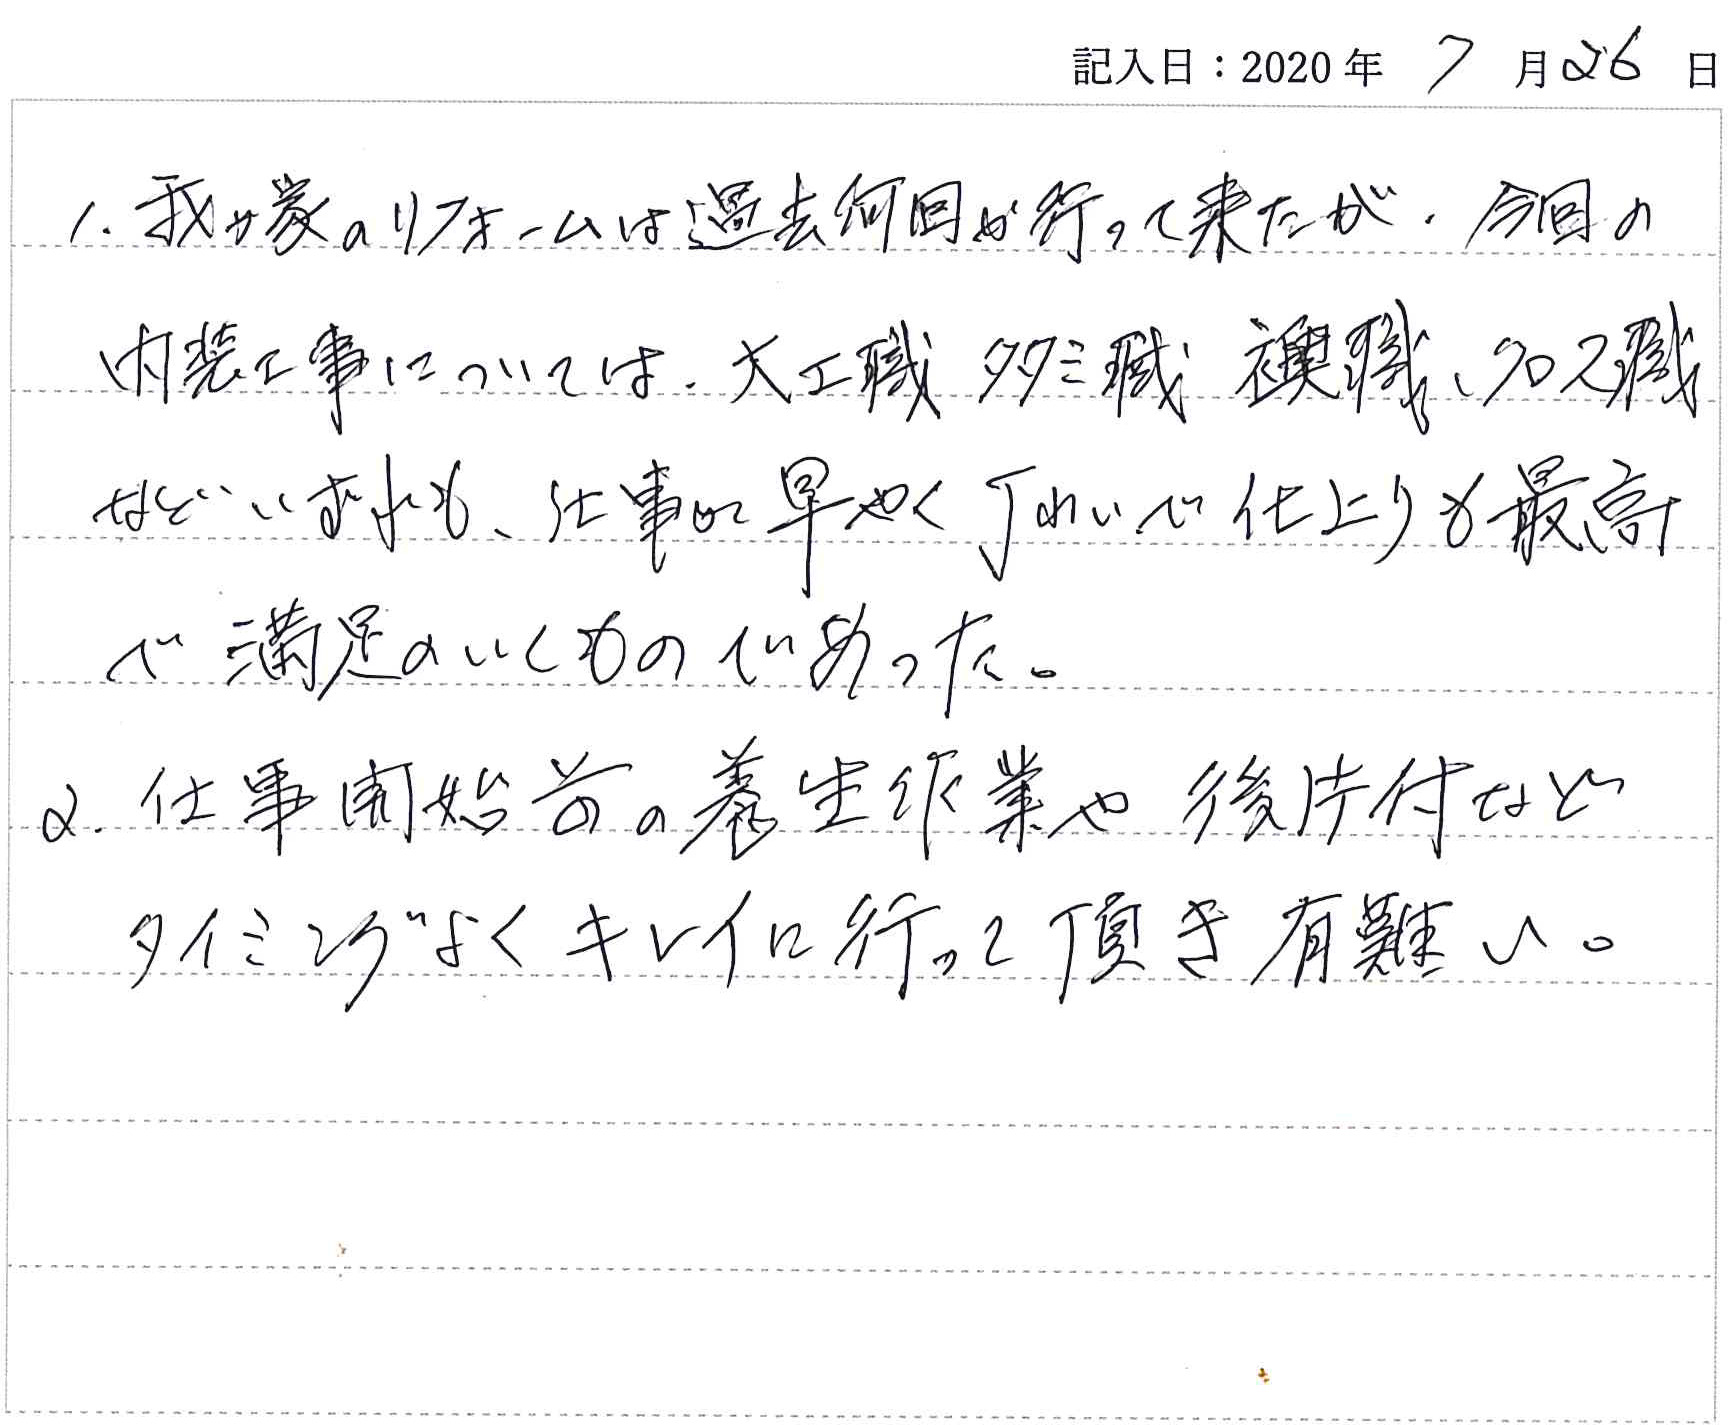 記入日：2020年 7 月 26 日
1. 我が家のリフォームは過去何回か行って来たが、今回の
内装工事については、大工職 タタミ職 襖職、クロス職
などいずれも、仕事が早やく きれいで仕上りも最高
で満足のいくものであった。
2. 仕事開始前の養生作業や後片付など
タイミングよくキレイに行って頂き有難い。